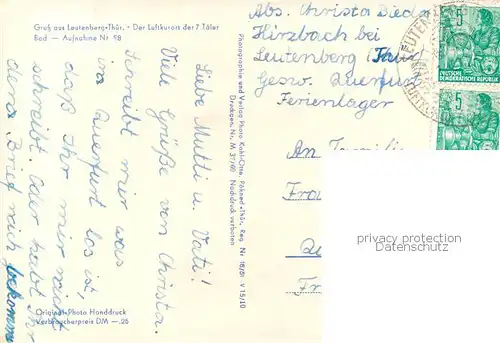 Gruß aus Leutenberg-Thür. - Der Luftkurort der 7 Täler
Bad — Aufnahme Nr 98
Liebe Mutti u. Vati!
Viele Grüße von Christa.
Schreibt mir was
in Querfurt los ist,
daß Ihr mir nicht
schreibt. Oder habt Ihr
den Brief nich bekomm
Original-Photo Handdruck
Verbraucherpreis DM —.25
Photographie und Verlag Photo Kahl-Otte, Pößneck-Thür. Reg. Nr 16/61 V 15/10
Druckgen. Nr. M 37/61 Nachdruck verboten
Abs. Christa
Hirzbach bei
Leutenberg (Thür)
Gesw. Querfurt
Ferienlager
An Familie
Fra
Qu
Fr
5
DEUTSCHE
DEMOKRATISCHE REPUBLIK
5
privacy protection
Datenschutz